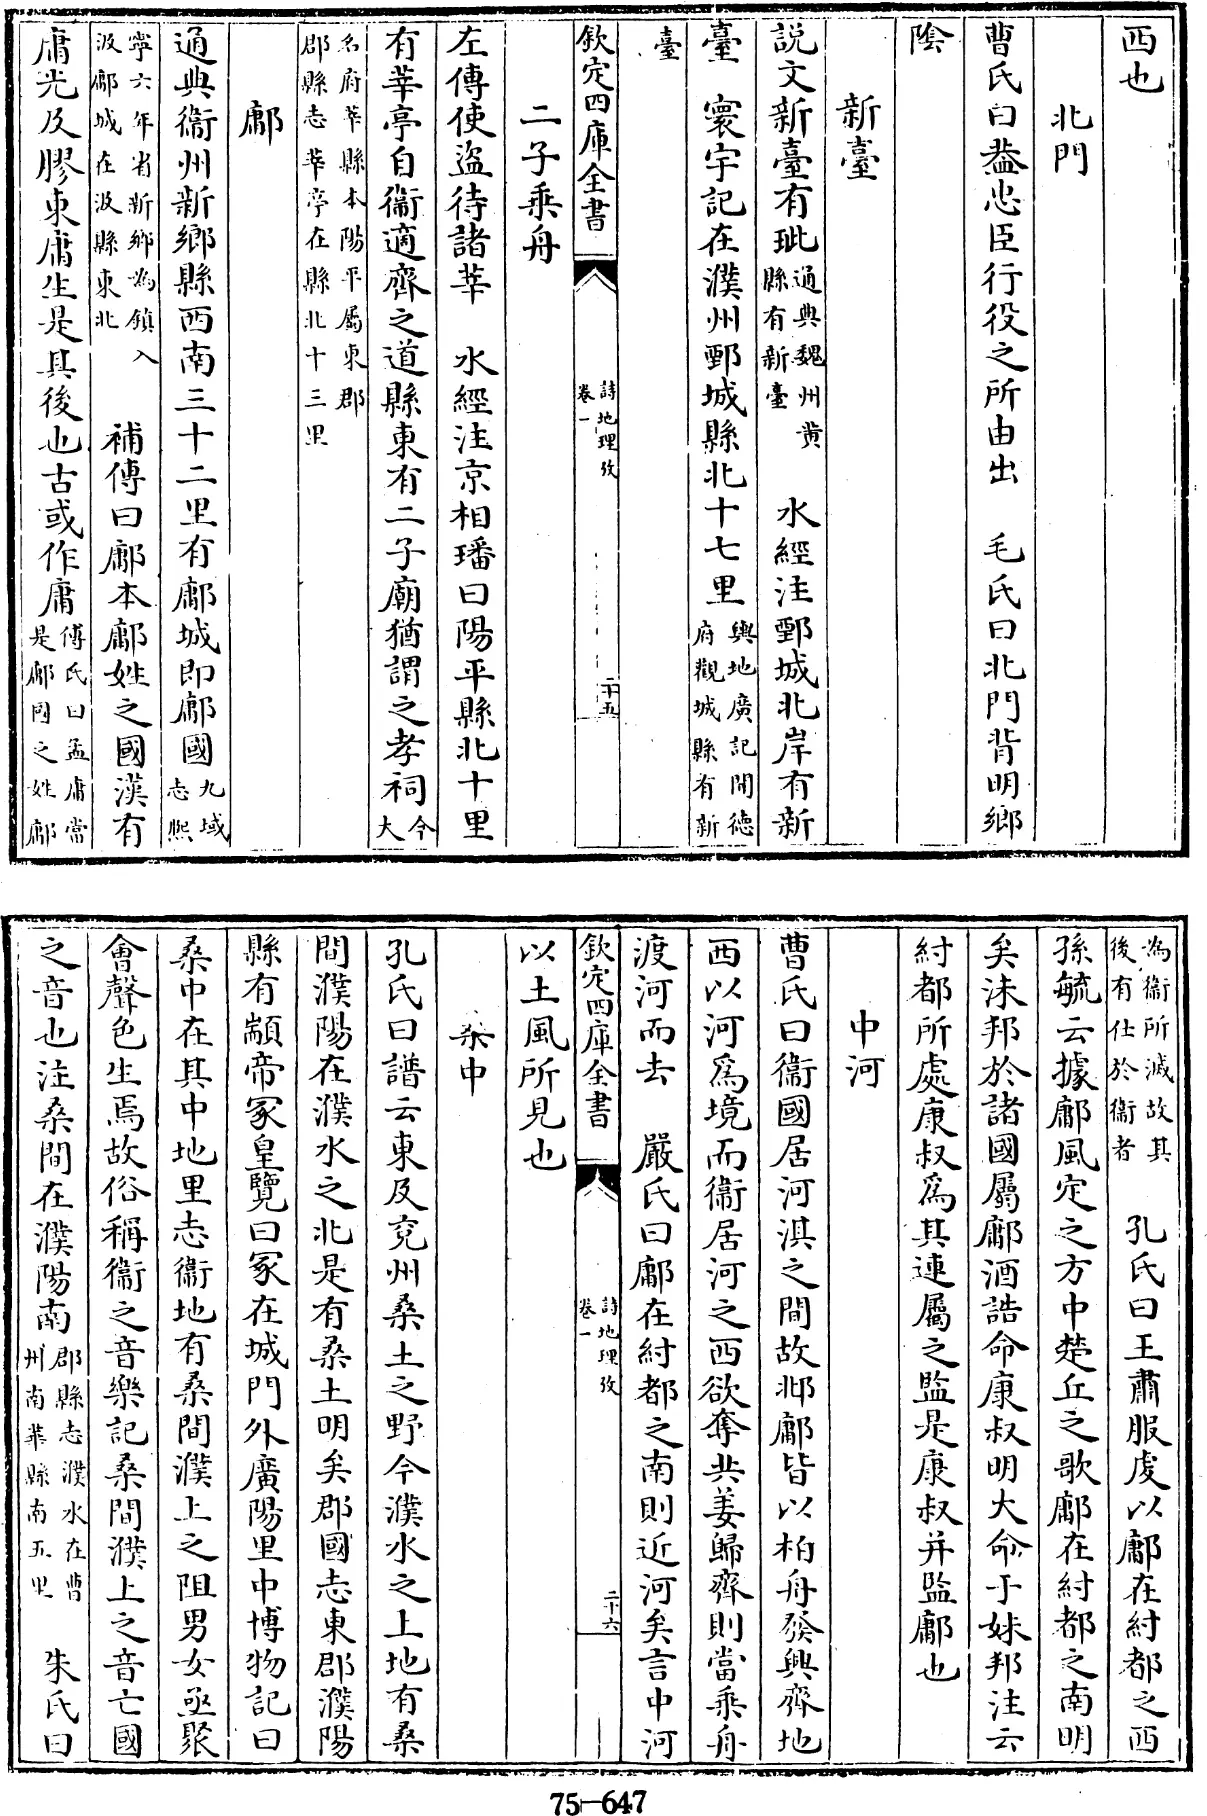 西也
北門
曹氏曰葢忠臣行役之所由出　毛氏曰北門背明鄉
陰
新臺
說文新臺有玼通典魏州黄縣有新臺　水經注鄄城北岸有新
臺　寰宇記在濮州鄄城縣北十七里輿地廣記開德府觀城縣有新
臺
欽定四庫全書
詩地理攷
卷一
二十五
二子乘舟
左傳使盜待諸莘　水經注京相璠曰陽平縣北十里
有莘亭自衞適齊之道縣東有二子廟猶謂之孝祠今大
名府莘縣本陽平屬東郡郡縣志莘亭在縣北十三里
鄘
通典衞州新鄉縣西南三十二里有鄘城即鄘國九域志熙
寧六年省新鄉為鎮入汲鄘城在汲縣東北　補傳曰鄘本鄘姓之國漢有
庸光及膠東庸生是其後也古或作庸傅氏曰孟庸當是鄘國之姓鄘
為衞所滅故其後有仕於衞者　孔氏曰王肅服虔以鄘在紂都之西
孫毓云據鄘風定之方中楚丘之歌鄘在紂都之南明
矣沬邦於諸國屬鄘酒誥命康叔明大命于妹邦注云
紂都所處康叔爲其連屬之監是康叔并監鄘也
中河
曹氏曰衞國居河淇之間故邶鄘皆以柏舟發興齊地
西以河爲境而衞居河之西欲奪共姜歸齊則當乘舟
渡河而去　嚴氏曰鄘在紂都之南則近河矣言中河
欽定四庫全書
詩地理攷
卷一
二十六
以土風所見也
桑中
孔氏曰譜云東及兖州桑土之野今濮水之上地有桑
間濮陽在濮水之北是有桑土明矣郡國志東郡濮陽
縣有顓帝冢皇覽曰冢在城門外廣陽里中博物記曰
桑中在其中地里志衞地有桑間濮上之阻男女亟聚
會聲色生焉故俗稱衞之音樂記桑間濮上之音亡國
之音也注桑間在濮陽南郡縣志濮水在曹州南華縣南五里　朱氏曰
75-647